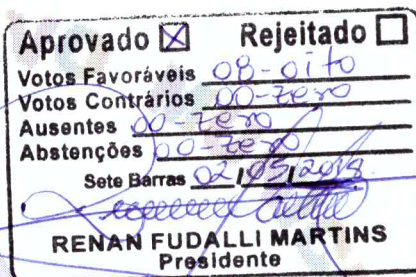 Aprovado ☒ Rejeitado ☐
Votos Favoráveis 08-oito
Votos Contrários 00-zero
Ausentes 00-zero
Abstenções 00-zero
Sete Barras 02/05/2018
RENAN FUDALLI MARTINS
Presidente